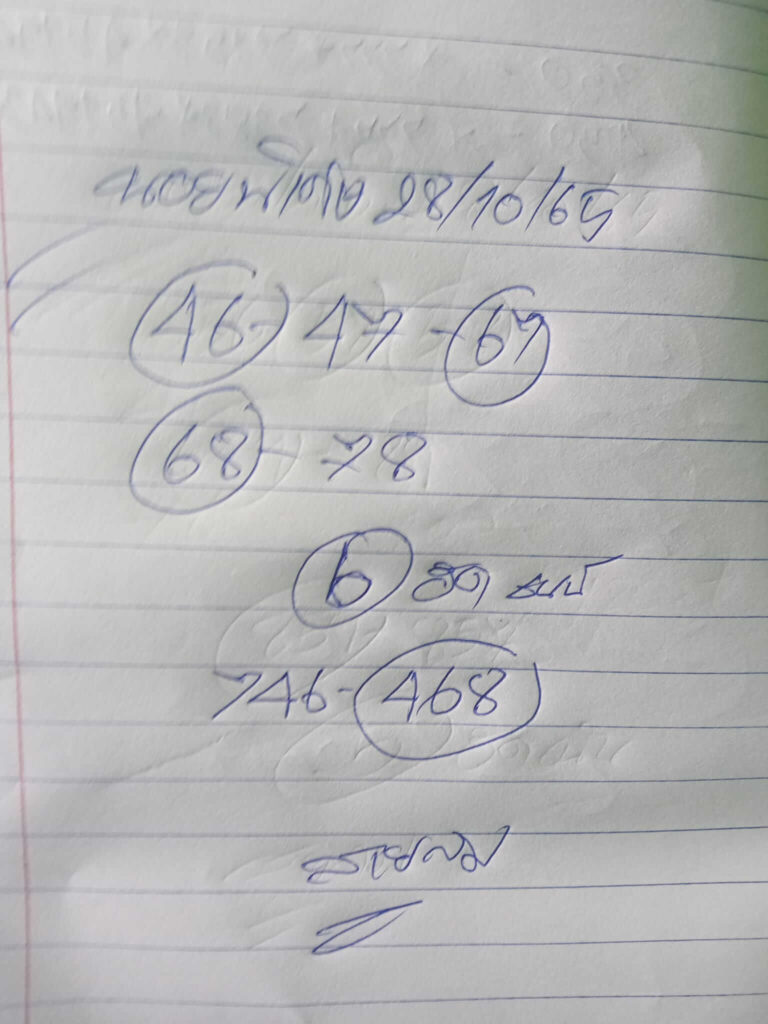 นอยพิเศษ 28/10/65
46 - 47 - 67
68 - 78
6 ฮิต
746 - 468
สายลม